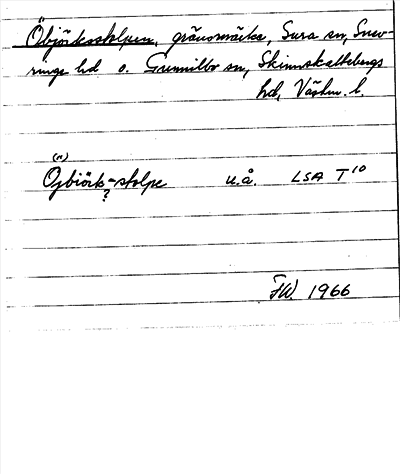 Öbjörksstolpen, gränsmärke, Sura sn, Snev-
ringe hd o. Gunnilbo sn, Skinnskattebergs
hd, Västm. l.
(")
Ojbiörk=stolpe u.å. LSA T¹⁰
?
FW. 1966